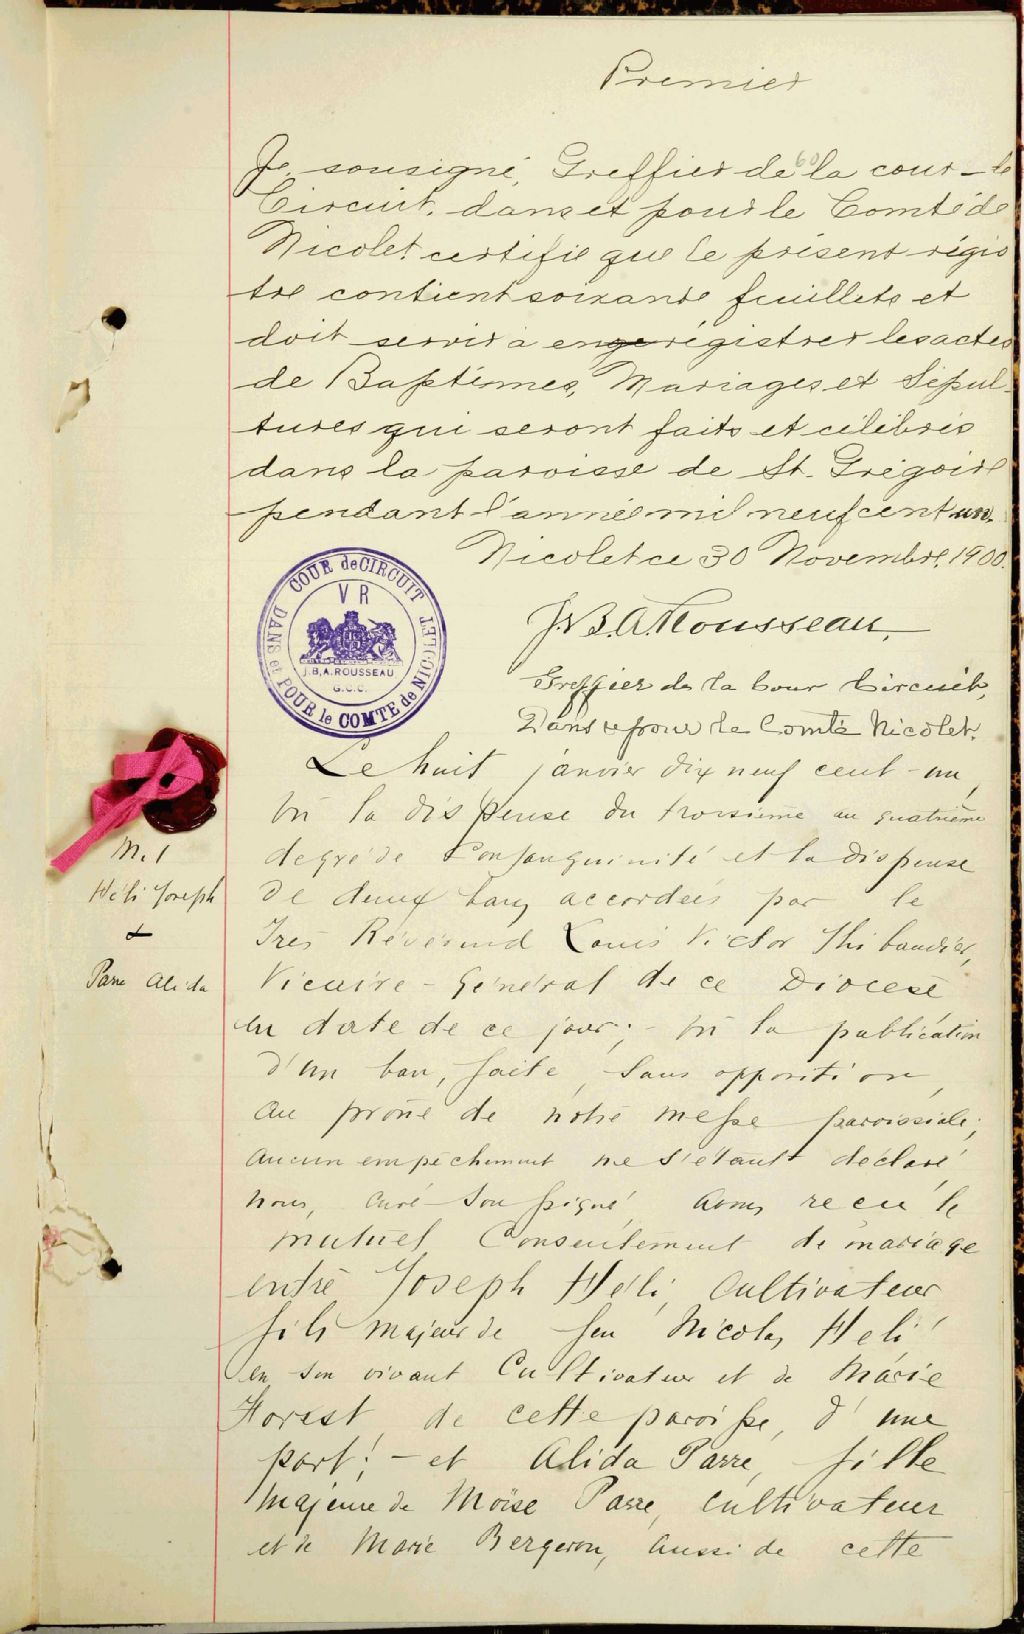 Premier
Je, sousigné, Greffier de la cour de
60
Circuit, dans et pour le Comté de
Nicolet certifie que le présent régis
tre contient soixante feuillets et
doit servir à enregistrer les actes
de Baptêmes, Mariages et Sépul-
tures qui seront faits et célébrés
dans la paroisse de St. Grégoire
pendant l'année mil neuf cent un.
Nicolet ce 30 Novembre, 1900.
COUR de CIRCUIT
DANS et POUR le COMTE de NICOLET
V R
J.B.A. ROUSSEAU
G.C.C.
J.B.A. Rousseau,
Greffier de la Cour Circuit,
Dans et pour le Comté Nicolet.
Le huit janvier dix neuf cent-un,
vu la dispense du troisième au quatrième
degré de Consanguinité et la dispense
de deux bans accordées par le
Très Révérend Louis Victor Thibaudier,
Vicaire-Général de ce Diocèse
en date de ce jour; - vu la publication
d'un ban, faite, sans opposition,
au prône de notre messe paroissiale;
aucun empêchement ne s'étant déclaré
nous, curé soussigné avons reçu le
mutuel Consentement de mariage
entre Joseph Héli, Cultivateur
fils majeur de feu Nicolas Héli
en son vivant Cultivateur et de Marie
Forest de cette paroisse, d'une
part; - et Alida Parre, fille
majeure de Moïse Parre, cultivateur
et de Marie Bergeron, aussi de cette
M. 1
Héli Joseph
&
Parre Alida